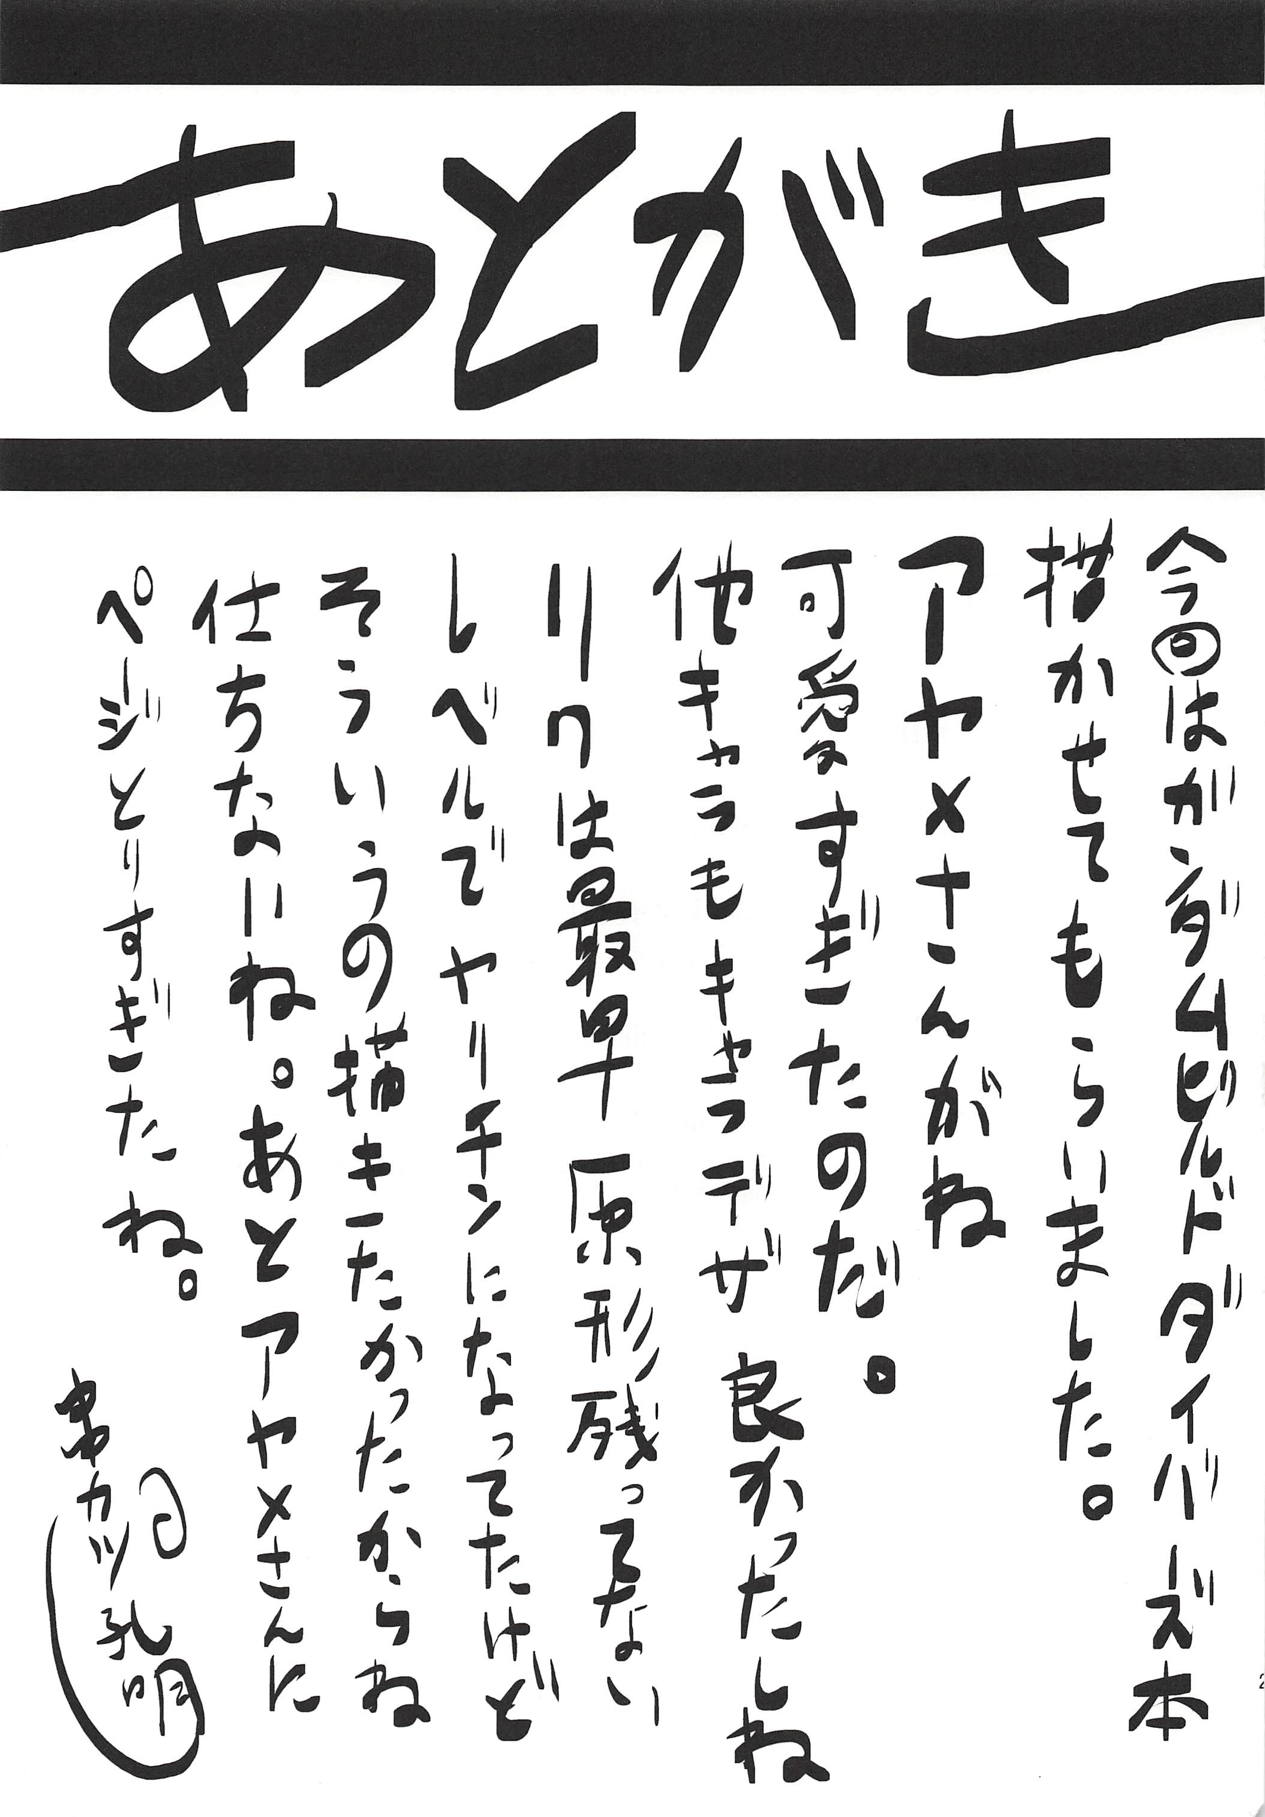 あとがき
今回はガンダムビルドダイバーズ本
描かせてもらいました。
アヤメさんがね
可愛すぎたのだ。
他キャラもキャラデザ良かったしね
リクは最早原形残ってない
レベルでヤリチンになってたけど
そういうの描きたかったからね
仕方ないね。あとアヤメさんに
ページとりすぎたね。
カツ孔明